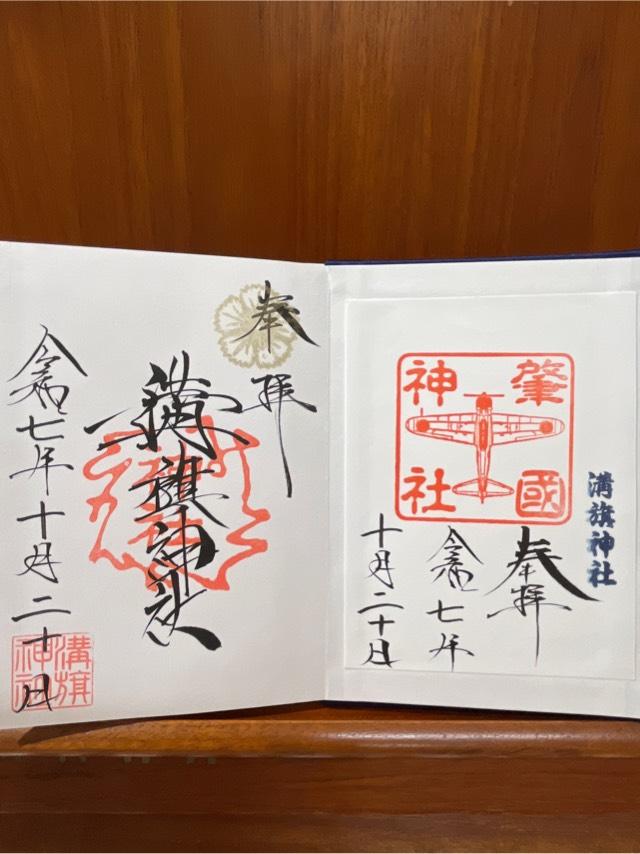 奉拝
肇國
神社
溝旗神社
奉拝
令和七年
十月二十日
奉拝
溝旗神社
令和七年十月二十日
溝旗
神社